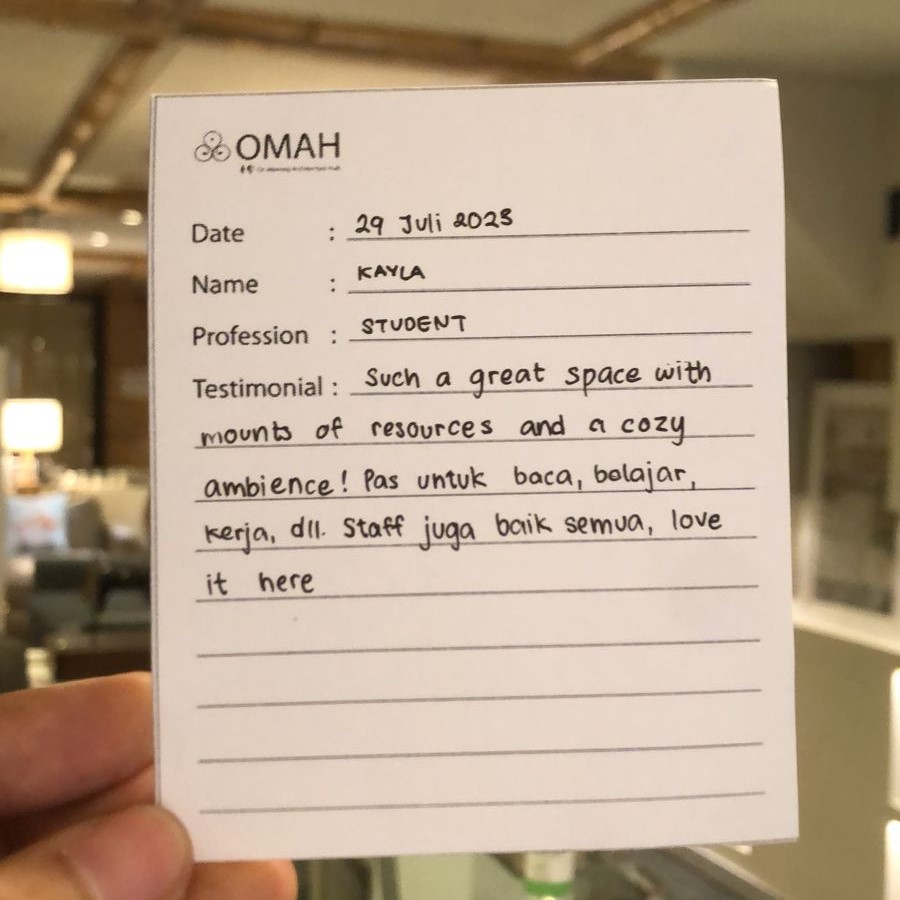 OMAH
Date : 29 Juli 2023
Name : KAYLA
Profession : STUDENT
Testimonial : Such a great space with
mounts of resources and a cozy
ambience! Pas untuk baca, belajar,
kerja, dll. Staff juga baik semua, love
it here